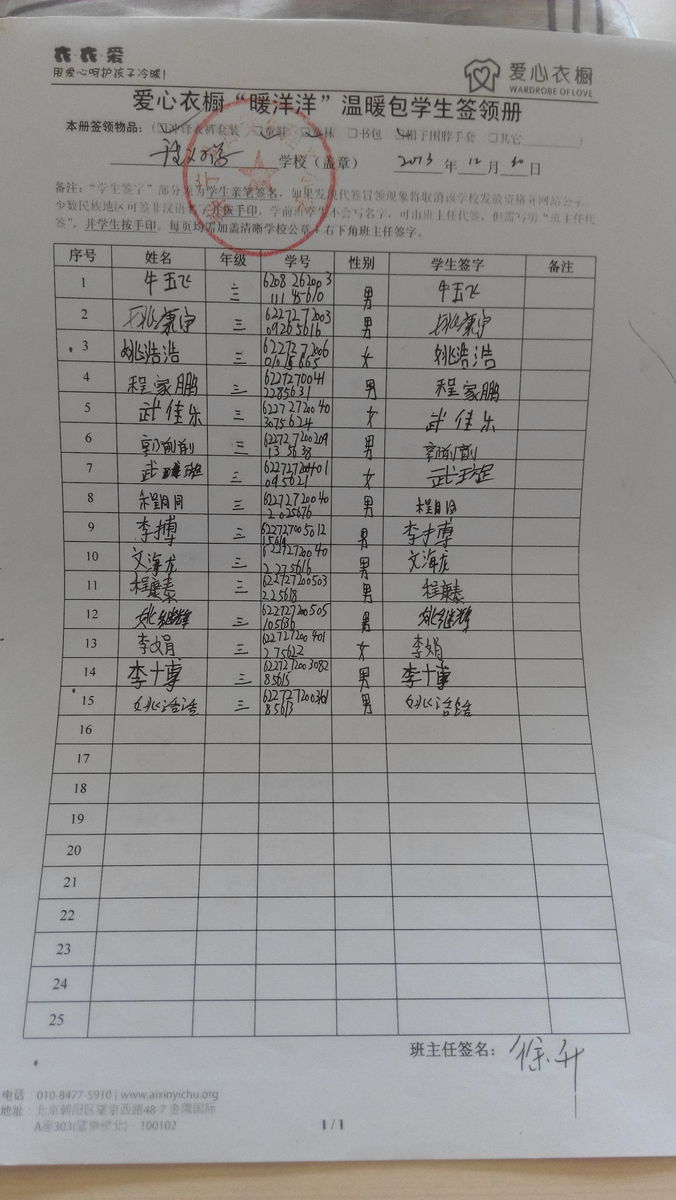 衣·衣·爱
用爱心呵护孩子冷暖!
爱心衣橱
WARDROBE OF LOVE
爱心衣橱“暖洋洋”温暖包学生签领册
本册签领物品:(☑冲锋衣裤套装 ☑童鞋 ☑童袜 □书包 ☑帽子围脖手套 □其它
学校(盖章) 2013 年 12 月 30 日
备注:“学生签字”部分须为学生亲笔签名,如果发现代签冒领现象将取消该学校发放资格并网站公示。
少数民族地区可签非汉语名字并按手印,学前班学生不会写名字,可由班主任代签,但需写明“班主任代
签”,并学生按手印。每页均需加盖清晰学校公章+右下角班主任签字。
序号 姓名 年级 学号 性别 学生签字 备注
1 牛五飞 三 男 牛五飞
2 姚康宁 三 男 姚康宁
3 姚浩浩 三 女 姚浩浩
4 程家鹏 三 6227270041 2285631 男 程家鹏
5 武佳乐 三 62272720040 3075624 女 武佳乐
6 郭前前 三 622727200209 135638 男 郭前前
7 武 三 622727200401 095621 女 武
8 三 62272720040 2025676 男
9 李博 三 6227272005012 男 李博
10 文海龙 三 62272720040 2275616 男 文海龙
11 程康泰 三 622727200503 225618 男 程康泰
12 姚继辉 三 622727200505 105636 男 姚继辉
13 李娟 三 622727200401 275622 女 李娟
14 李十博 三 6227272003082 85615 男 李十博
15 姚浩浩 三 6227272003161 85613 男 姚浩浩
16
17
18
19
20
21
22
23
24
25
班主任签名: 徐升
电话 010-8477-5910 | www.aixinyichu.org
地址: 北京朝阳区望京西路48-7 金隅国际
A座303(望京桥北) · 100102
1 / 1